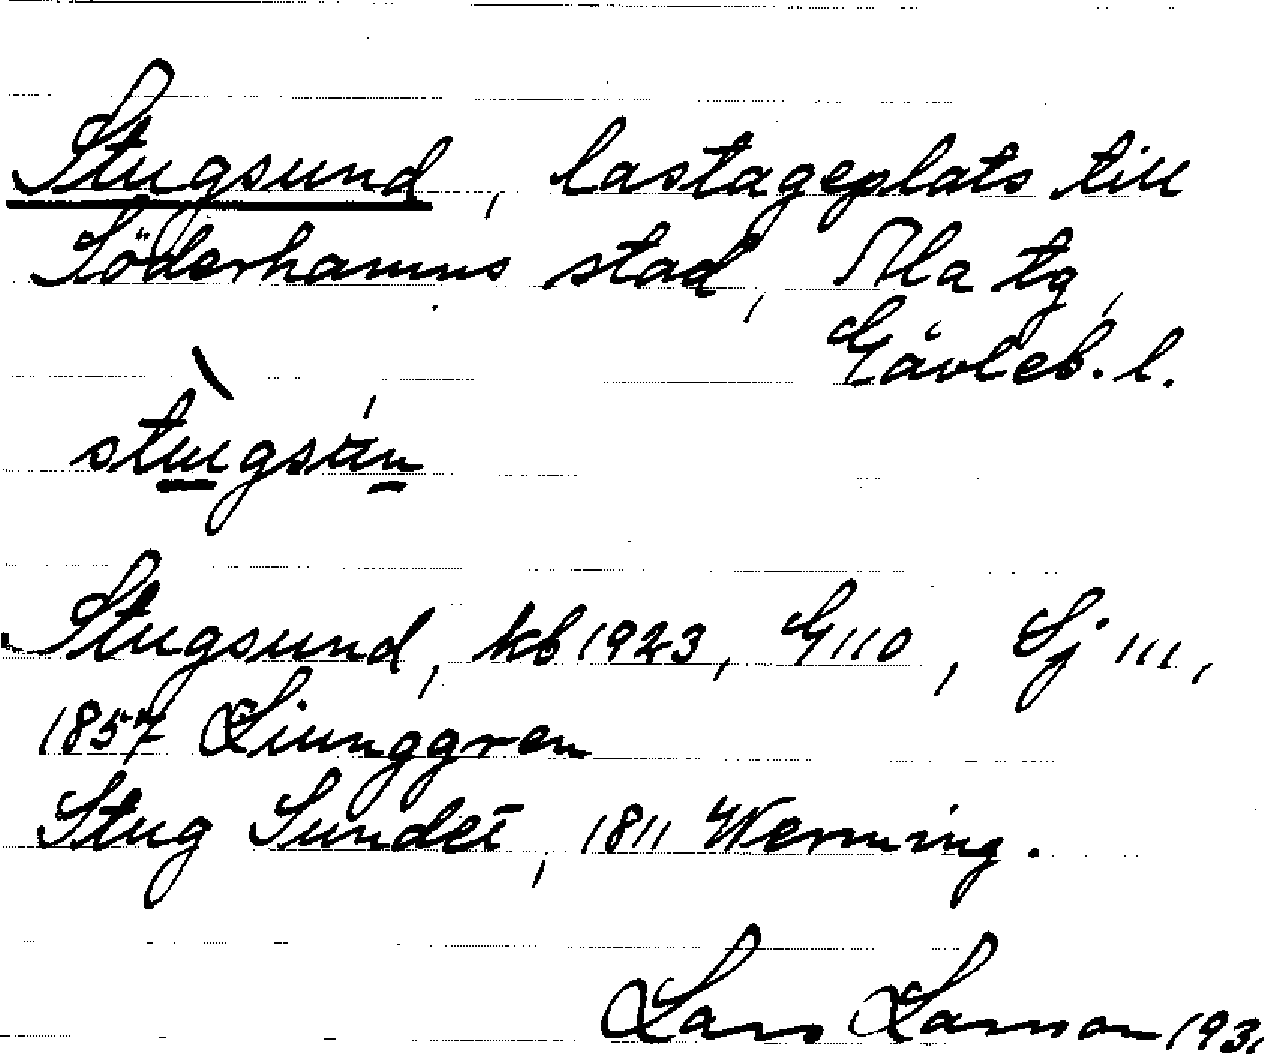 Stugsund, lastageplats till
Söderhamns stad, Ala tg,
Gävleb. l.
Stugsund, kb 1923, G110, Sj 111,
1857 Ljunggren
Stug Sundet, 1811 Wenning.
Lars Larsson 193